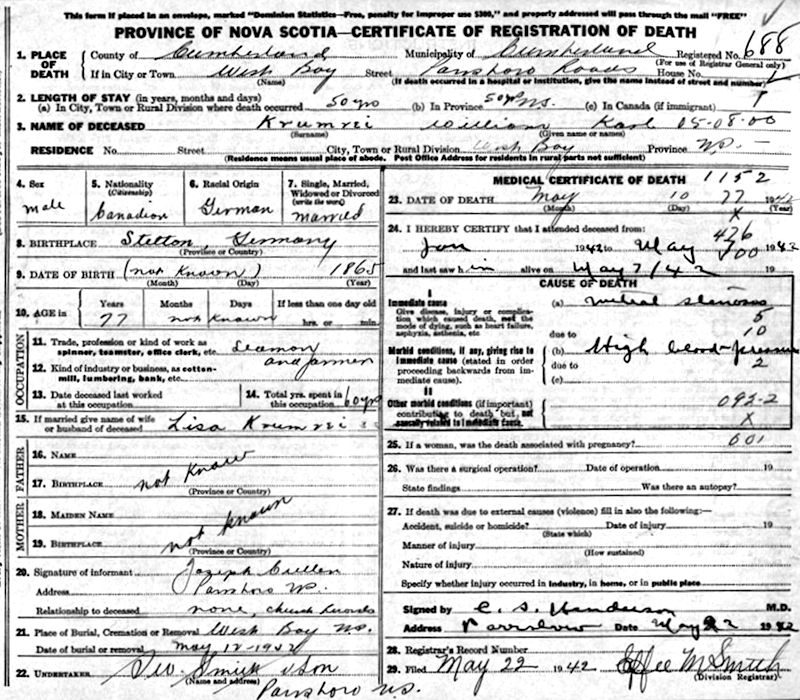 This form if placed in an envelope, marked "Dominion Statistics—Free, penalty for improper use $300," and properly addressed will pass through the mail "FREE"
PROVINCE OF NOVA SCOTIA—CERTIFICATE OF REGISTRATION OF DEATH
1. PLACE OF DEATH County of Cumberland Municipality of Cumberland Registered No. 688
(For use of Registrar General only)
If in City or Town West Bay Street Parrsboro Roads House No.
(Name) (If death occurred in a hospital or institution, give the name instead of street and number)
2. LENGTH OF STAY (in years, months and days)
(a) In City, Town or Rural Division where death occurred 50 yrs (b) In Province 50 yrs. (c) In Canada (if immigrant)
3. NAME OF DECEASED Krumrei William Karl 05-08-00
(Surname) (Given name or names)
RESIDENCE No. Street City, Town or Rural Division West Bay Province NS
(Residence means usual place of abode. Post Office Address for residents in rural parts not sufficient)
4. Sex male
5. Nationality (Citizenship) Canadian
6. Racial Origin German
7. Single, Married, Widowed or Divorced (write the word) married
8. BIRTHPLACE Stetton, Germany
(Province or Country)
9. DATE OF BIRTH (not known) 1865
(Month) (Day) (Year)
10. AGE in Years Months Days If less than one day old
77 not known hrs. or min.
OCCUPATION
11. Trade, profession or kind of work as spinner, teamster, office clerk, etc. Seaman
and farmer
12. Kind of industry or business, as cotton-mill, lumbering, bank, etc.
13. Date deceased last worked at this occupation
14. Total yrs. spent in this occupation 60 yrs
15. If married give name of wife or husband of deceased Lisa Krumrei
FATHER
16. Name
17. Birthplace not know
(Province or Country)
MOTHER
18. Maiden Name
19. Birthplace not known
(Province or Country)
20. Signature of informant Joseph Cullen
Address Parrsboro NS.
Relationship to deceased none, church records
21. Place of Burial, Cremation or Removal West Bay NS.
Date of burial or removal May 12-1942
22. Undertaker Geo. Smith & Son
(Name and address)
Parrsboro N.S.
MEDICAL CERTIFICATE OF DEATH 1152
23. DATE OF DEATH May 10 77 1942
(Month) (Day) (Year)
X
24. I HEREBY CERTIFY that I attended deceased from: 426
Jan 1942 to May 100 1942
and last saw h im alive on May 7/42 19
CAUSE OF DEATH
I
Immediate cause
Give disease, injury or complication which caused death, not the mode of dying, such as heart failure, asphyxia, asthenia, etc
(a) mitral stenosis
5
due to 10
Morbid conditions, if any, giving rise to immediate cause (stated in order proceeding backwards from immediate cause).
(b) High blood-pressure
due to 2
(c)
II
Other morbid conditions (if important) contributing to death but not causally related to immediate cause.
092-2
X
25. If a woman, was the death associated with pregnancy? 601
26. Was there a surgical operation? Date of operation 19
State findings Was there an autopsy?
27. If death was due to external causes (violence) fill in also the following:—
Accident, suicide or homicide? Date of injury 19
(State which)
Manner of injury
(How sustained)
Nature of injury
Specify whether injury occurred in industry, in home, or in public place
Signed by C. S. Henderson M.D.
Address Parrsboro Date May 22 1942
28. Registrar's Record Number
29. Filed May 22 1942 Effie M Smith
(Division Registrar)